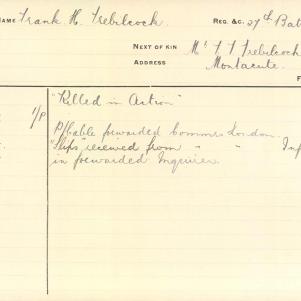 NAME Frank H. Trebilcock. REG. &C. 27th Bat
NEXT OF KIN Mr T T Trebilcock
ADDRESS Montacute.
F
1/P "Killed in Action"
P/Cable forwarded Commrs London.
"Slips received from " " Inf
in forwarded Inquiries